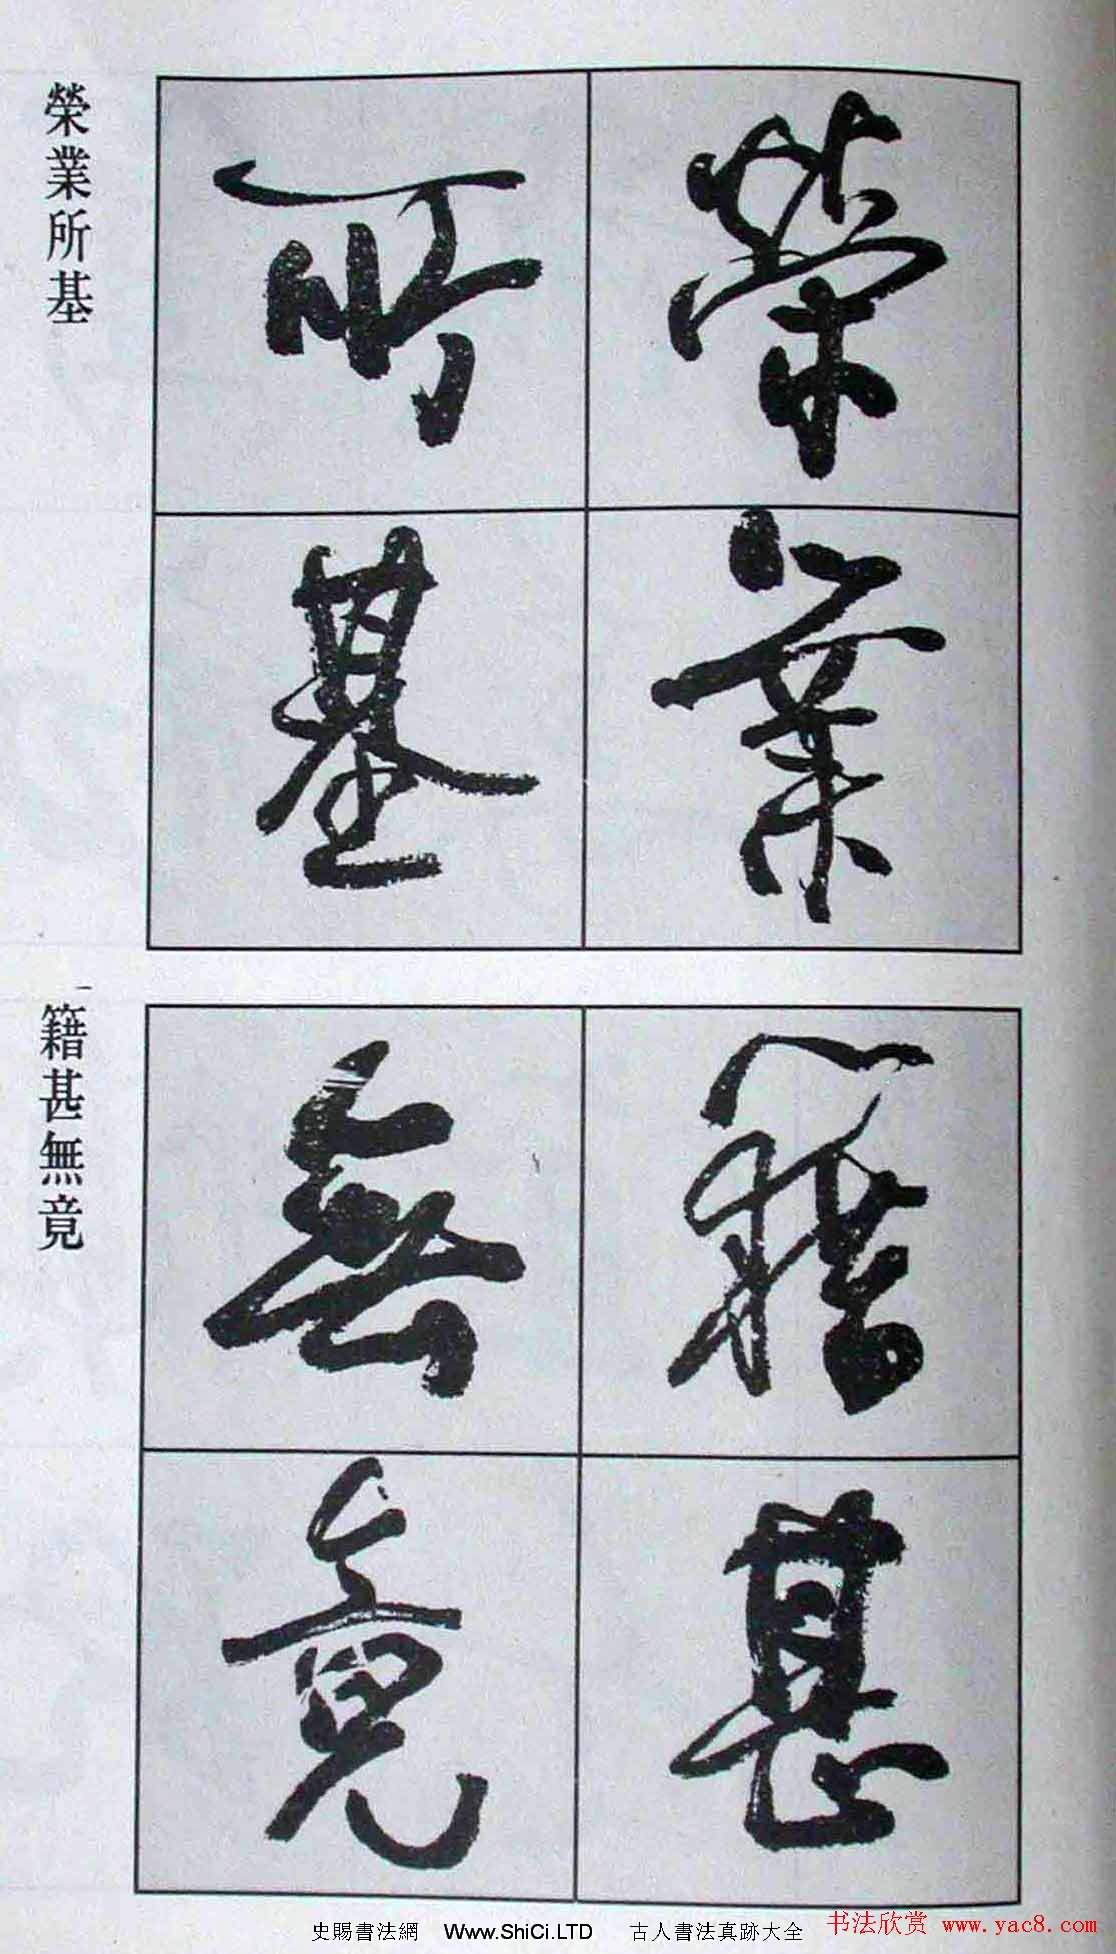 榮業
所基
榮業所基
籍甚
無竟
籍甚無竟
史賜書法網 Www.ShiCi.LTD 古人書法真跡大全
书法欣赏 www.yac8.com